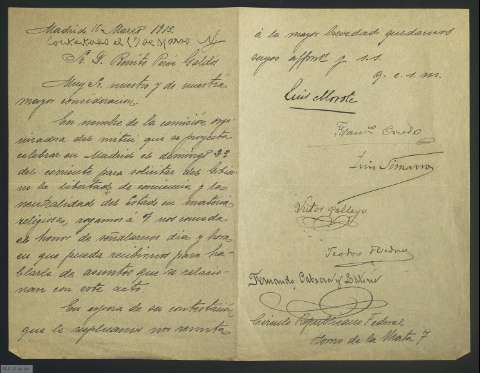 Madrid 16 Marzo 1913.
Contestado el 17 de Marzo
Sr. D. Benito Pérez Galdós
Muy Sr. nuestro y de nuestra
mayor consideración:
En nombre de la comisión orga-
nizadora del mitin que se proyecta
celebrar en Madrid el domingo 23
del corriente para solicitar del Gobier-
no la libertad de conciencia y la
neutralidad del Estado en materia
religiosa, rogamos á V. nos conceda
el honor de señalarnos dia y hora
en que pueda recibirnos para ha-
blarle de asuntos que se relacio-
nan con este acto.
En espera de su contestación
que le suplicamos nos remita
á la mayor brevedad quedamos
suyos affmos. q. s. s.
q. e. s. m.
Luis Morote
Luis Simarro
Victor Gallego
Fernando
Círculo Republicano Federal
Horno de la Mata 7